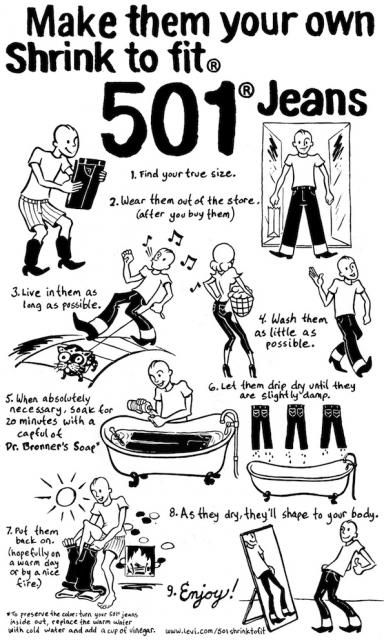 Make them your own
Shrink to fit®
501® Jeans
1. Find your true size.
2. Wear them out of the store.
(after you buy them)
3. Live in them as
long as possible.
4. Wash them
as little as
possible.
5. When absolutely
necessary, soak for
20 minutes with a
capful of
Dr. Bronner's Soap*
6. Let them drip dry until they
are slightly damp.
7. Put them
back on.
(hopefully on
a warm day
or by a nice
fire.)
8. As they dry, they'll shape to your body.
9. Enjoy!
*To preserve the color: turn your 501® jeans
inside out, replace the warm water
with cold water and add a cup of vinegar.
www.levi.com/501shrinktofit